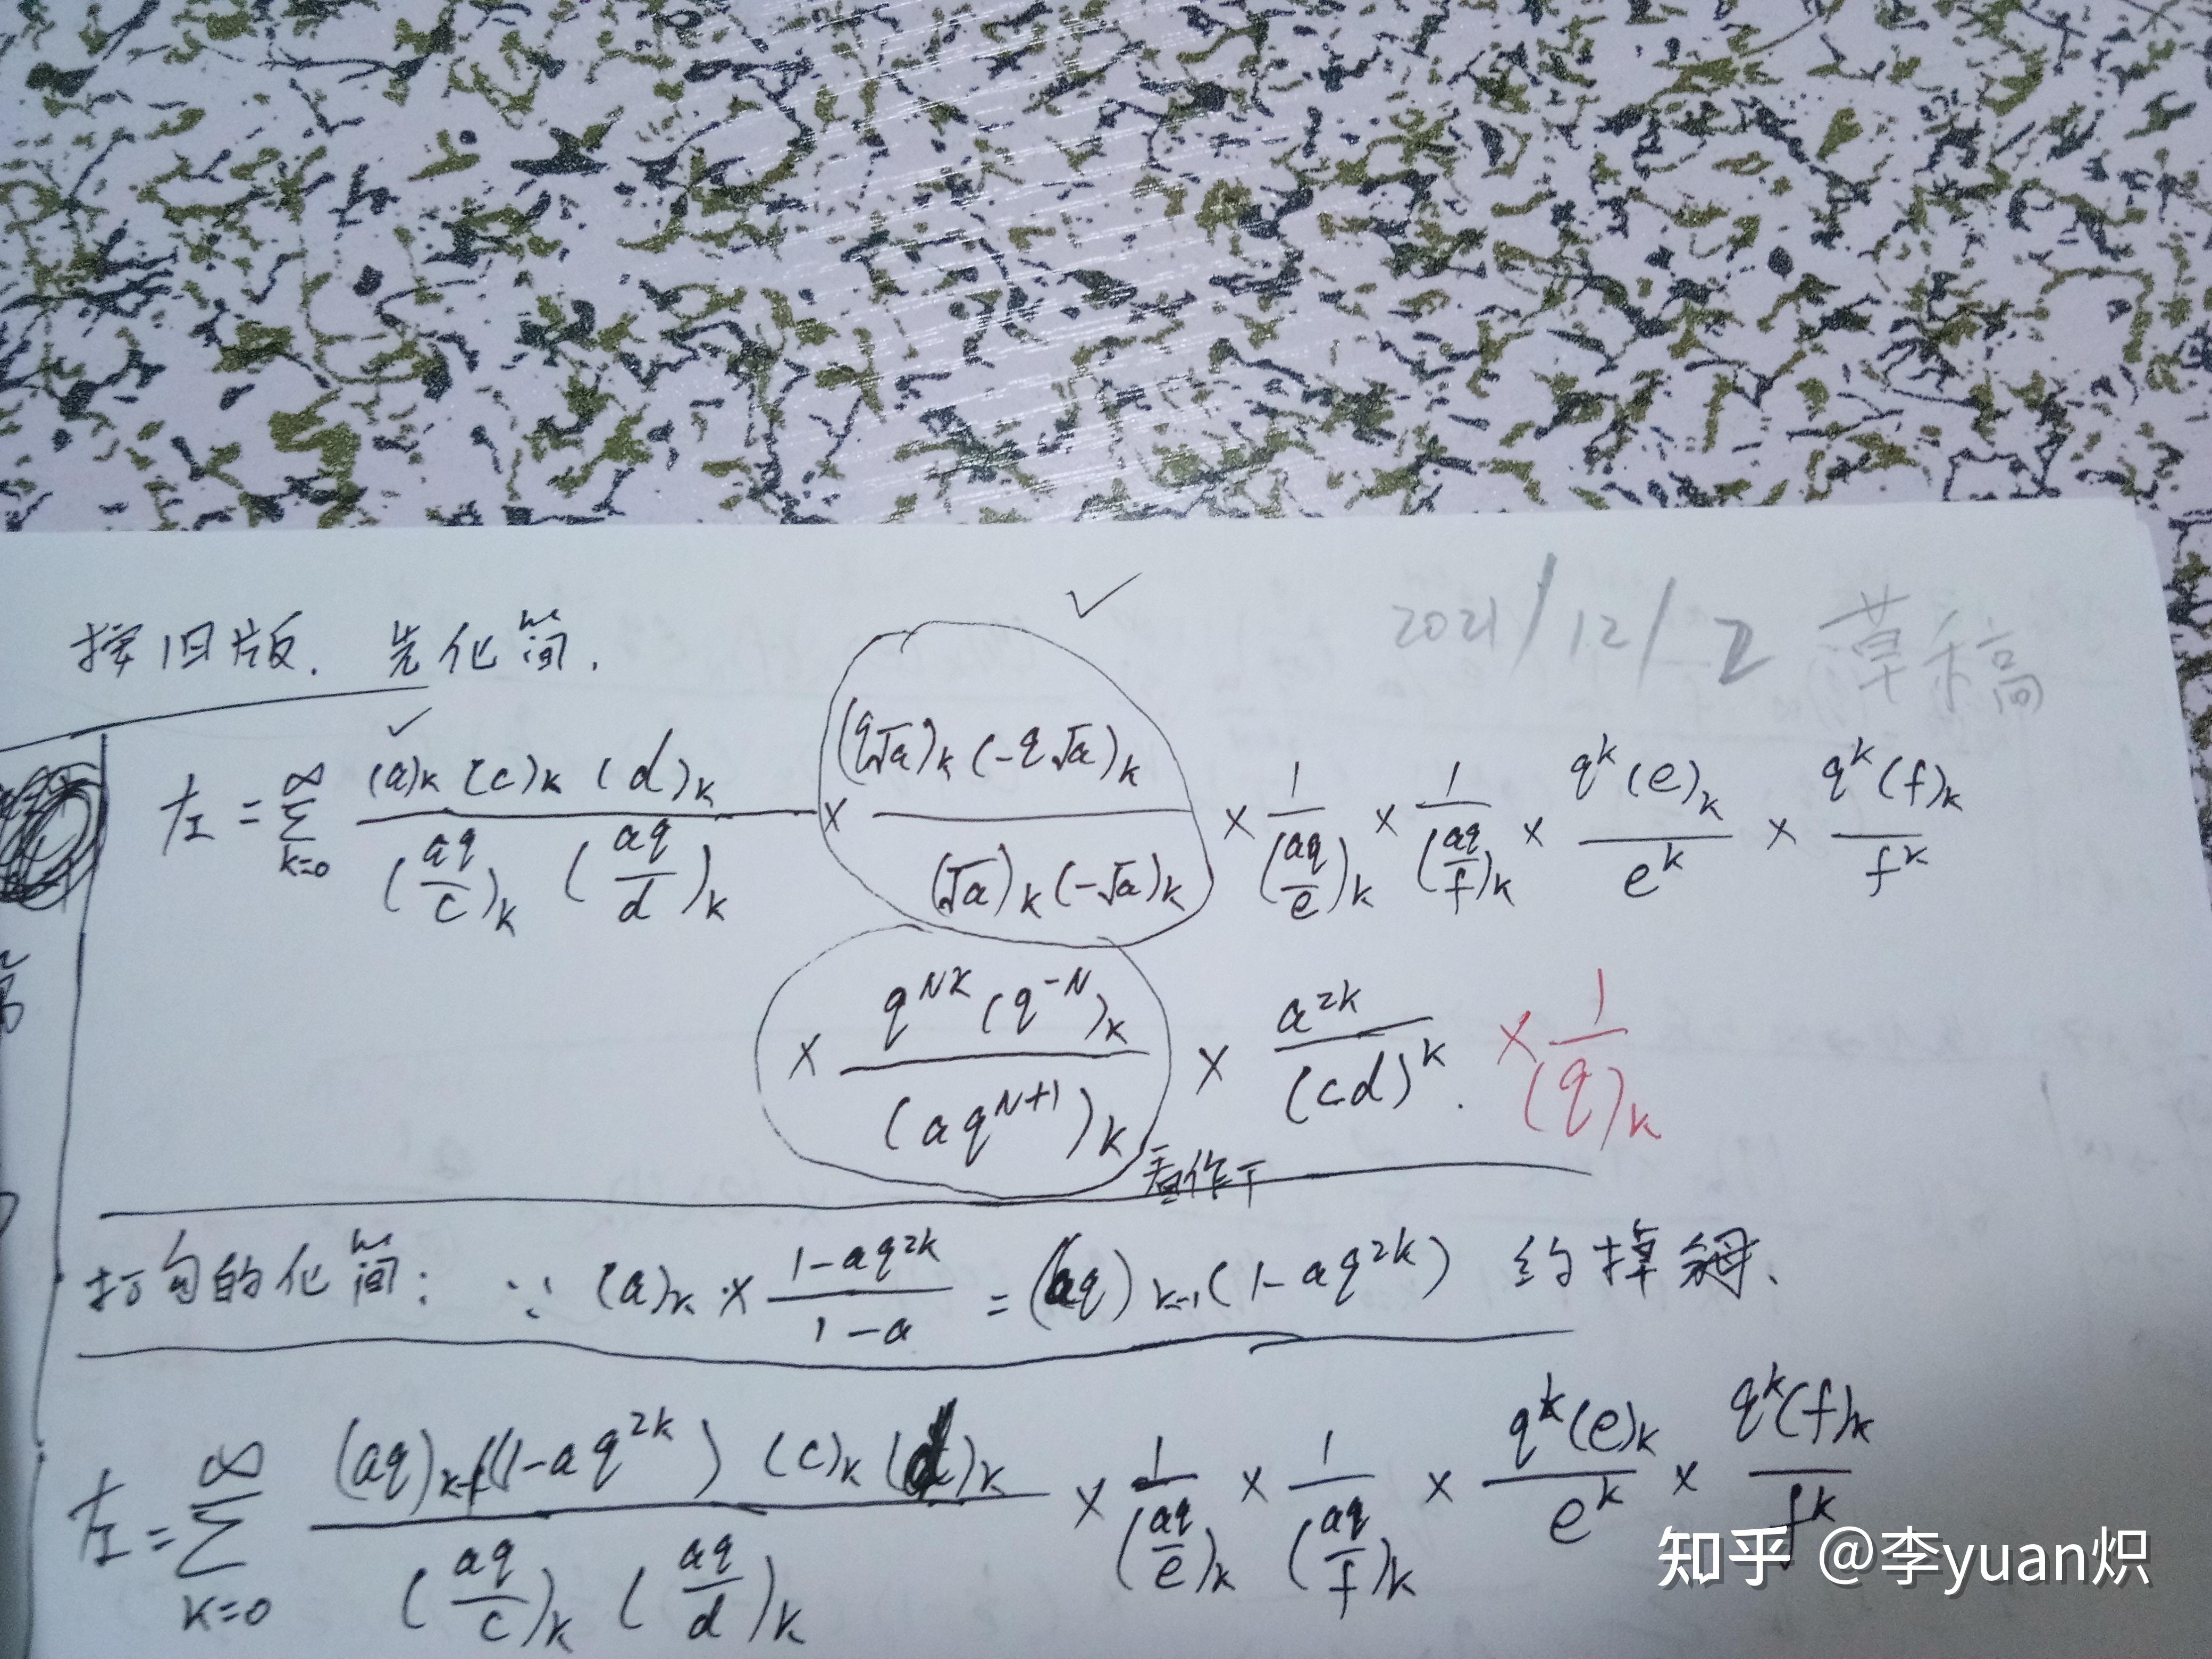 2021/12/2 草稿
按旧版. 先化简.
左 = ∑_{k=0}^{∞} \frac{(a)_k (c)_k (d)_k}{(\frac{aq}{c})_k (\frac{aq}{d})_k} × \frac{(q√a)_k (-q√a)_k}{(√a)_k (-√a)_k} × \frac{1}{(\frac{aq}{e})_k} × \frac{1}{(\frac{aq}{f})_k} × \frac{q^k (e)_k}{e^k} × \frac{q^k (f)_k}{f^k}
× \frac{q^{Nk} (q^{-N})_k}{(aq^{N+1})_k} × \frac{a^{2k}}{(cd)^k} . × \frac{1}{(q)_k}
看作T
打勾的化简: ∵ (a)_k × \frac{1-aq^{2k}}{1-a} = (aq)_{k-1} (1-aq^{2k}) 约掉分母、
左 = ∑_{k=0}^{∞} \frac{(aq)_{k-1} (1-aq^{2k}) (c)_k (d)_k}{(\frac{aq}{c})_k (\frac{aq}{d})_k} × \frac{1}{(\frac{aq}{e})_k} × \frac{1}{(\frac{aq}{f})_k} × \frac{q^k (e)_k}{e^k} × \frac{q^k (f)_k}{f^k}
知乎 @李yuan炽